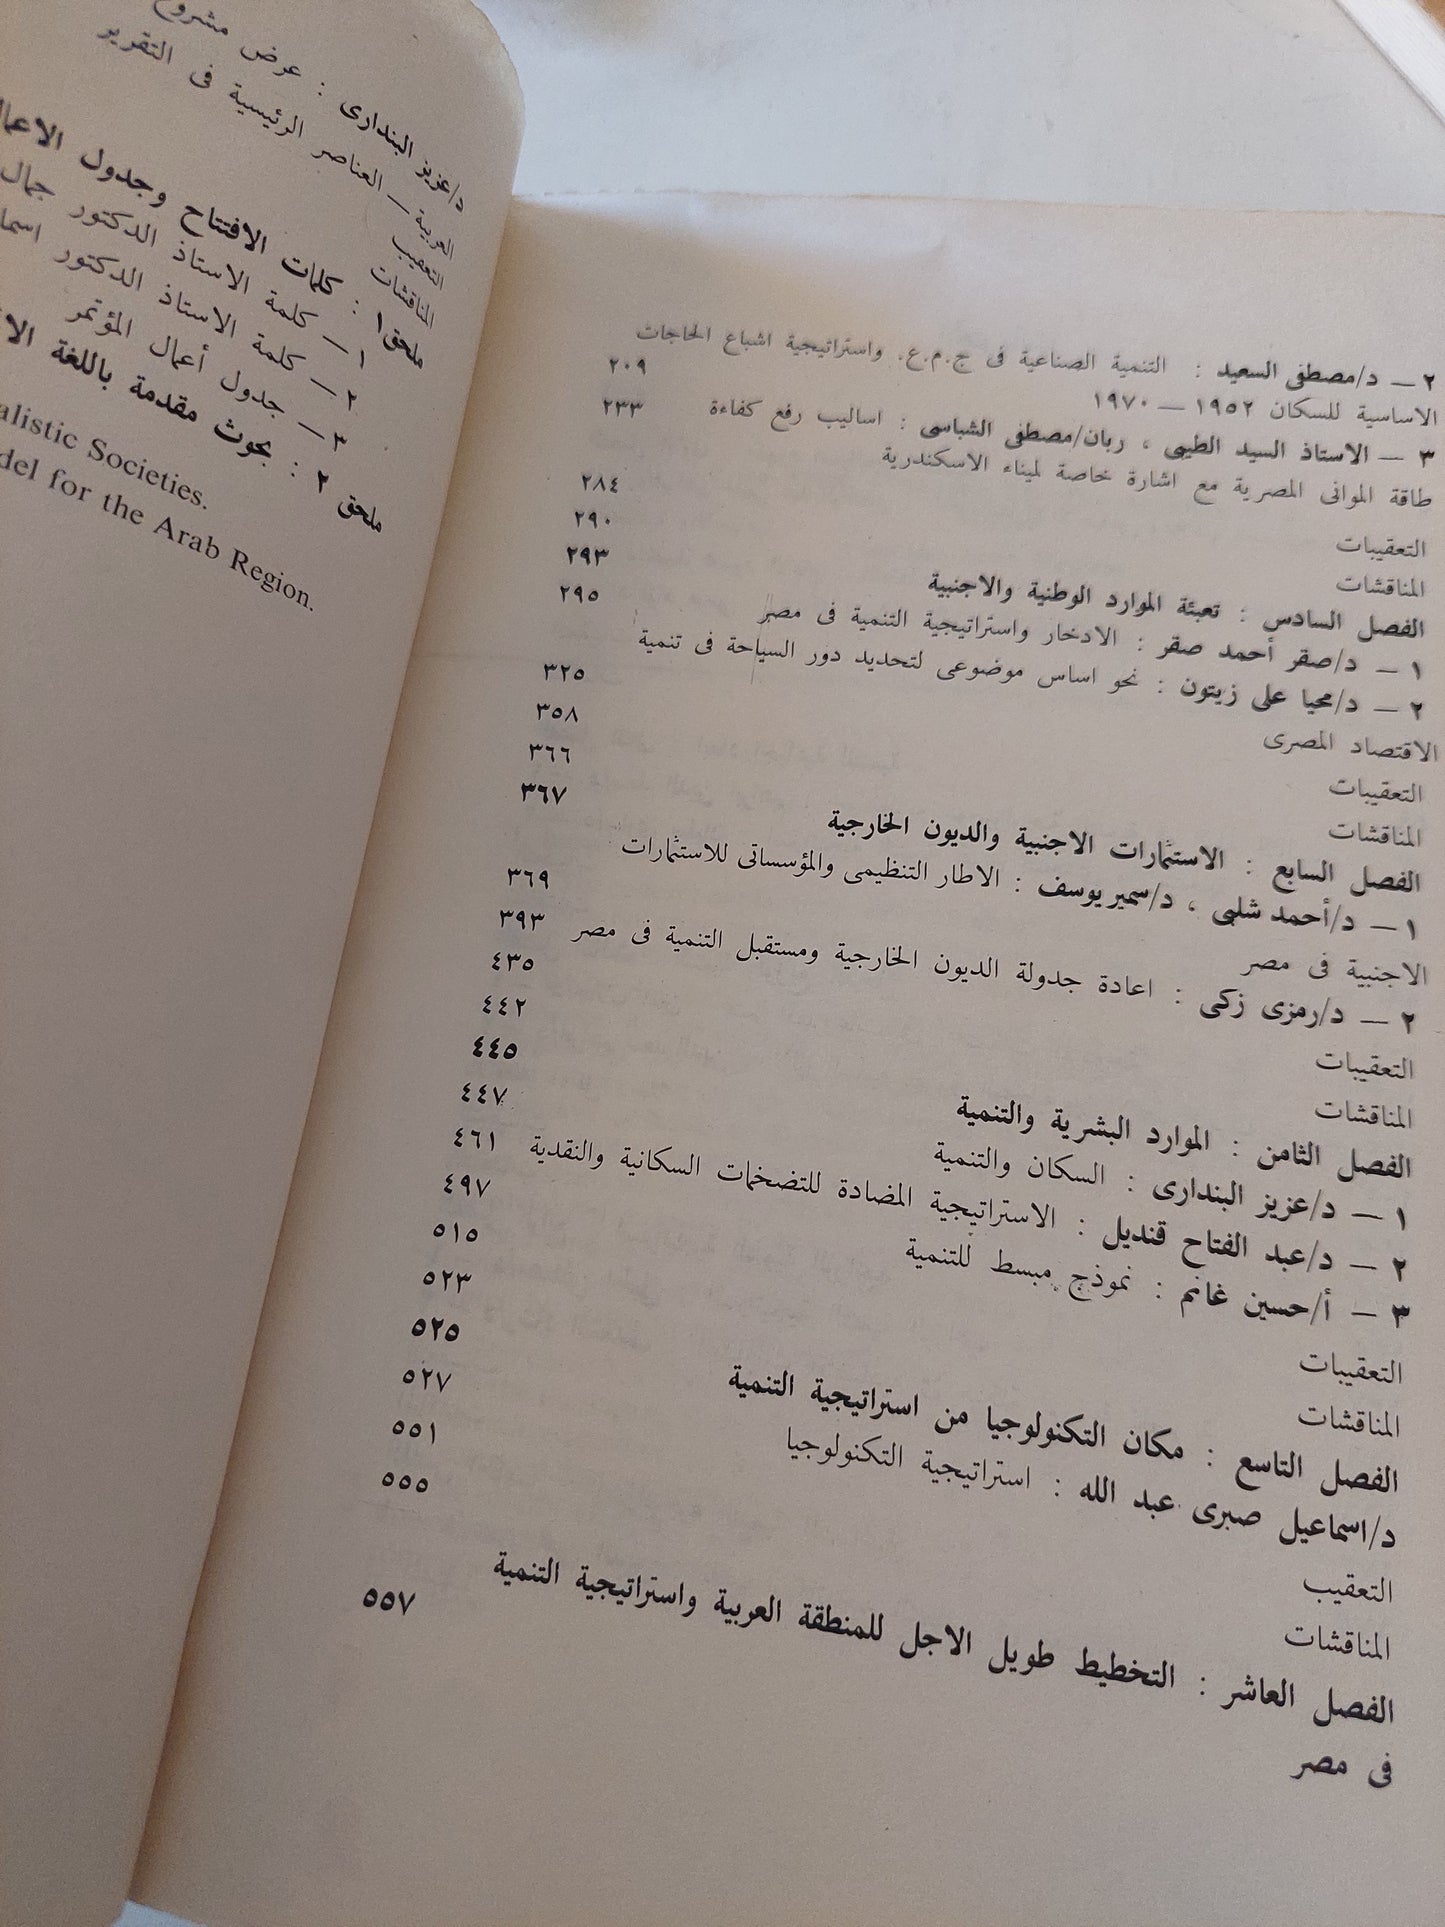 ٢ — د/مصطفى السعيد : التنمية الصناعية فى ج.م.ع. واستراتيجية اشباع الحاجات
الاساسية للسكان ١٩٥٢ — ١٩٧٠ ٢٠٩
٣ — الاستاذ السيد الطيبى ، ربان/مصطفى الشباسى : اساليب رفع كفاءة
طاقة الموانى المصرية مع اشارة خاصة لميناء الاسكندرية ٢٣٣
التعقيبات ٢٨٤
المناقشات ٢٩٠
الفصل السادس : تعبئة الموارد الوطنية والاجنبية ٢٩٣
١ — د/صقر أحمد صقر : الادخار واستراتيجية التنمية فى مصر ٢٩٥
٢ — د/محيا على زيتون : نحو اساس موضوعى لتحديد دور السياحة فى تنمية
الاقتصاد المصرى ٣٢٥
التعقيبات ٣٥٨
المناقشات ٣٦٦
الفصل السابع : الاستثمارات الاجنبية والديون الخارجية ٣٦٧
١ — د/أحمد شلبى ، د/سمير يوسف : الاطار التنظيمى والمؤسساتى للاستثمارات
الاجنبية فى مصر ٣٦٩
٢ — د/رمزى زكى : اعادة جدولة الديون الخارجية ومستقبل التنمية فى مصر ٣٩٣
التعقيبات ٤٣٥
المناقشات ٤٤٢
الفصل الثامن : الموارد البشرية والتنمية ٤٤٥
١ — د/عزيز البندارى : السكان والتنمية ٤٤٧
٢ — د/عبد الفتاح قنديل : الاستراتيجية المضادة للتضخمات السكانية والنقدية ٤٦١
٣ — أ/حسين غانم : نموذج مبسط للتنمية ٤٩٧
التعقيبات ٥١٥
المناقشات ٥٢٣
الفصل التاسع : مكان التكنولوجيا من استراتيجية التنمية ٥٢٥
د/اسماعيل صبرى عبد الله : استراتيجية التكنولوجيا ٥٢٧
التعقيب ٥٥١
المناقشات ٥٥٥
الفصل العاشر : التخطيط طويل الاجل للمنطقة العربية واستراتيجية التنمية
فى مصر ٥٥٧
د/عزيز البندارى : عرض مشروع
العربية — العناصر الرئيسية فى التقرير
التعقيب
المناقشات
ملحق ١ : كلمات الافتتاح وجدول الاعمال
١ — كلمة الاستاذ الدكتور جمال
٢ — كلمة الاستاذ الدكتور
٣ — جدول أعمال المؤتمر
ملحق ٢ : بحوث مقدمة باللغة
Societies.
for the Arab Region.